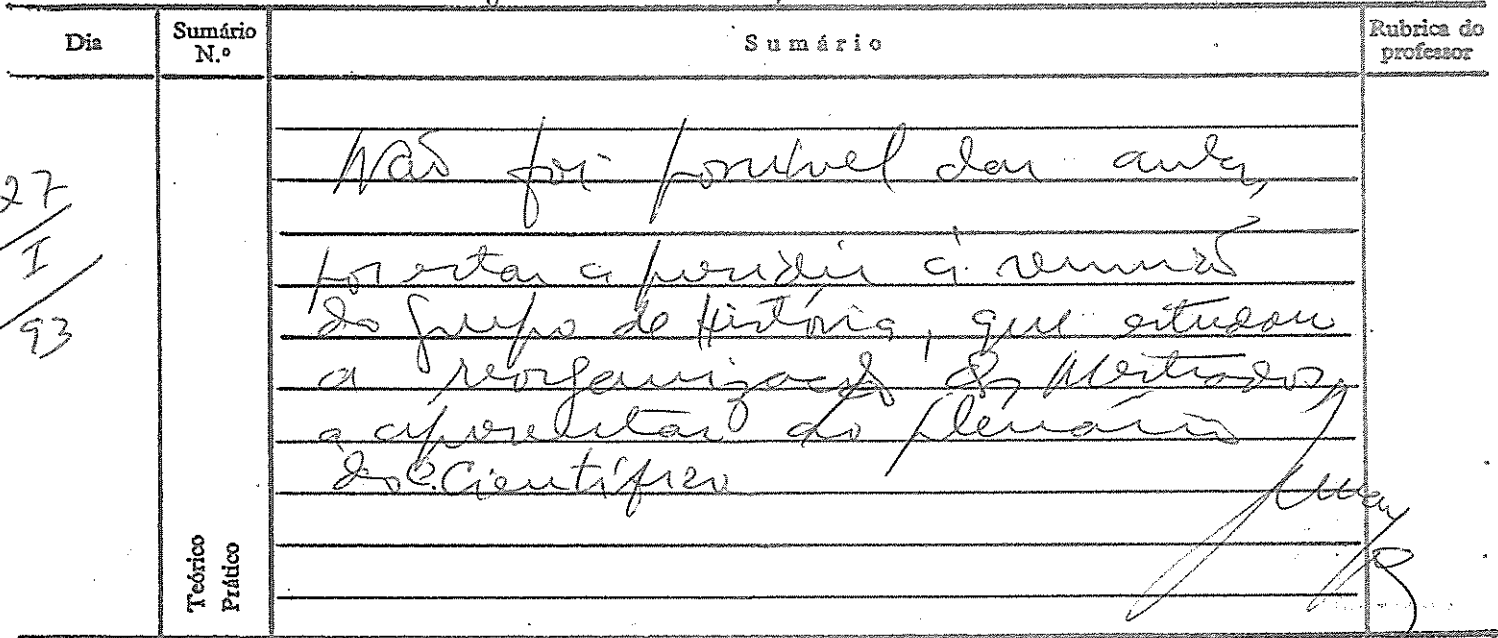 Dia
Sumário
N.º
Sumário
Rubrica do
professor
27
I
93
Teórico
Prático
Não foi possível dar aula,
por estar a presidir à reunião
do grupo de História, que estudou
a reorganização dos Mestrados,
a apresentar ao plenário
do C. Científico